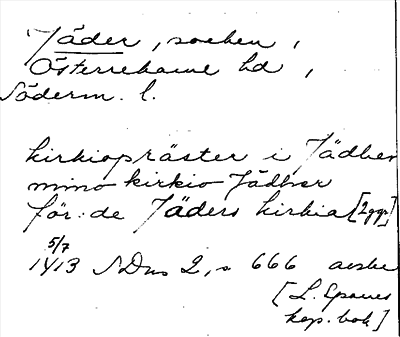 Jäder, socken,
Österrekarne hd,
Söderm. l.
kirkiopräster i Jädher
mino kirkio Jädher
för: de Jäders kirkia [2ggr]
5/7
1413 SDns 2, s 666 avskr
[L. Sparres
kop. bok]